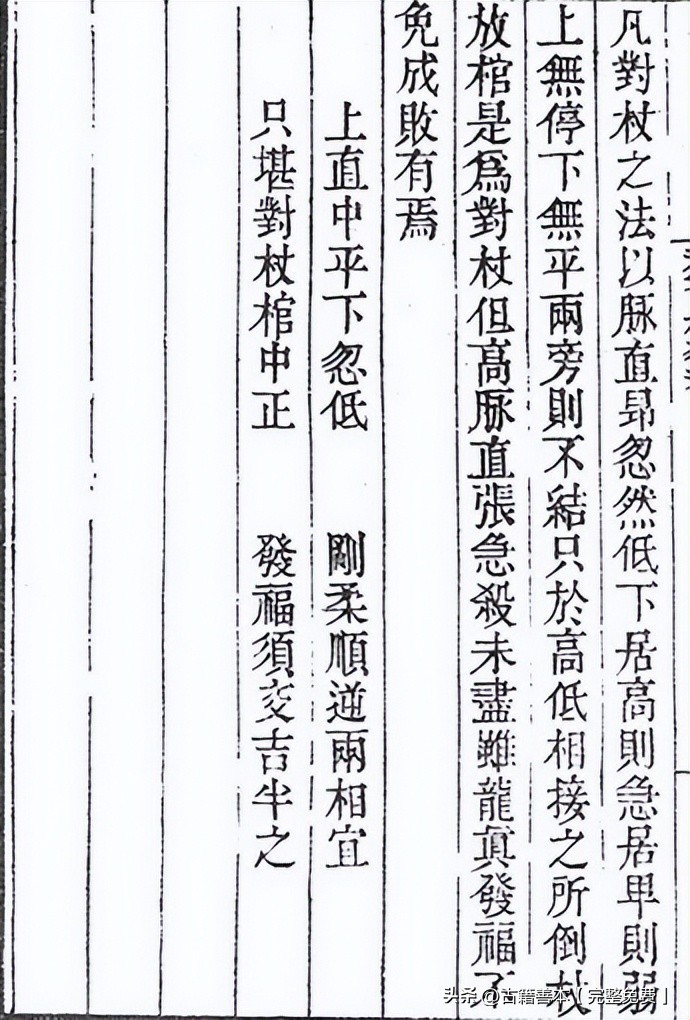 凡對杖之法以脉直昻忽然低下居高則急居卑則弱
上無停下無平兩旁則不結只於高低相接之所倒杖
放棺是爲對杖但高脉直張急殺未盡雖龍眞發福不
免成敗有焉
上直中平下忽低 剛柔順逆兩相宜
只堪對杖棺中正 發福須交吉半之
头条@古籍善本【完整免费】